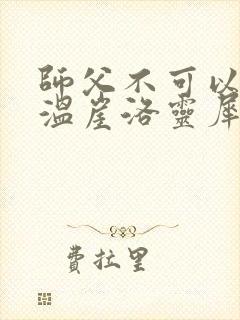 師父不可以
溫崖洛靈犀
費拉里